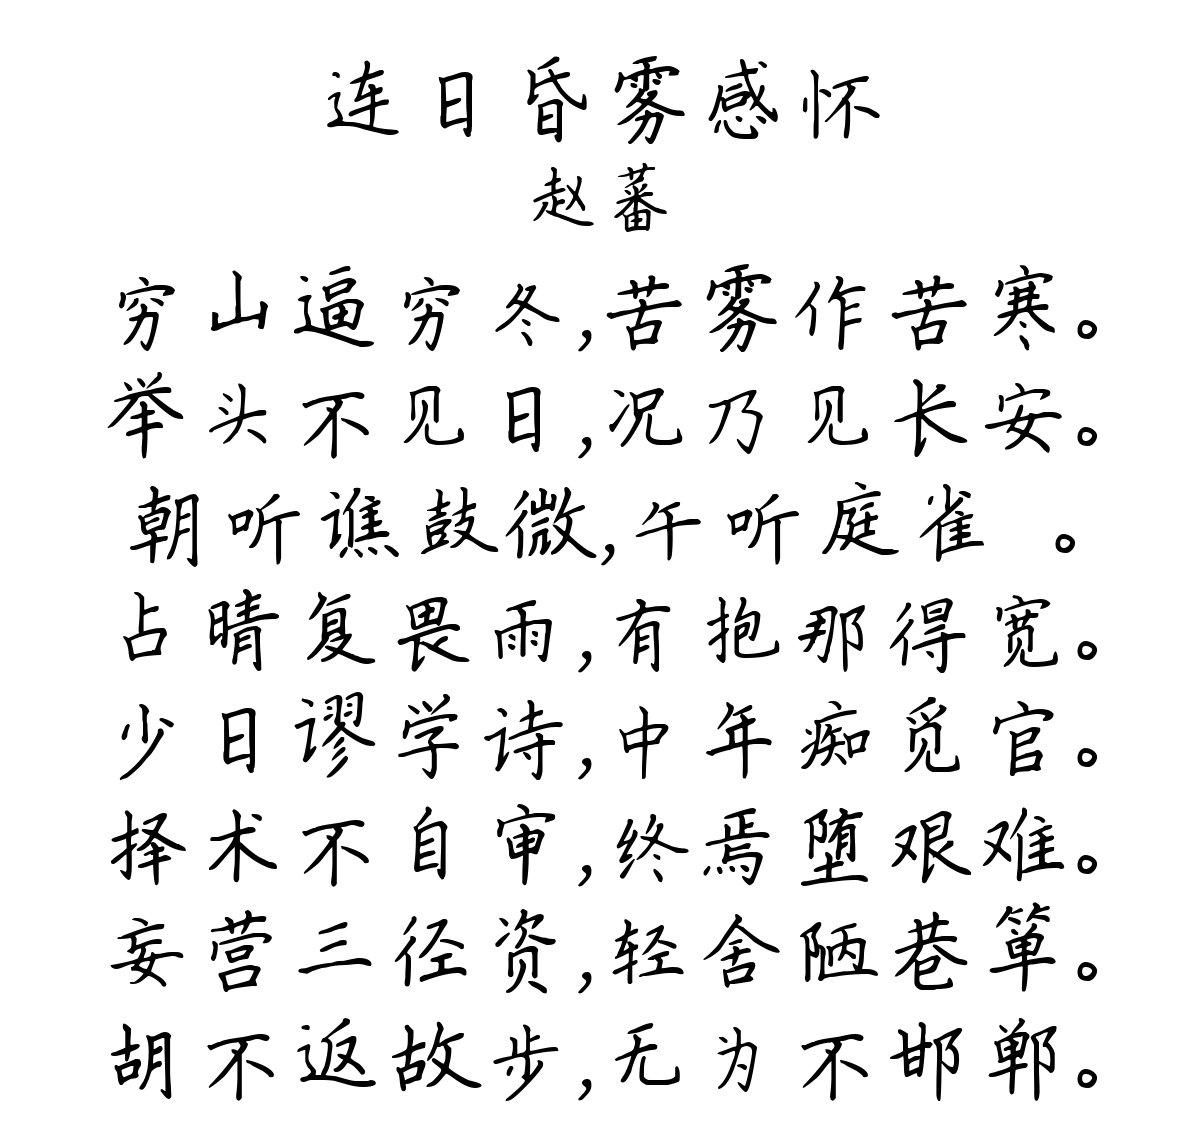 连日昏雾感怀
赵蕃
穷山逼穷冬,苦雾作苦寒。
举头不见日,况乃见长安。
朝听谯鼓微,午听庭雀 。
占晴复畏雨,有抱那得宽。
少日谬学诗,中年痴觅官。
择术不自审,终焉堕艰难。
妄营三径资,轻舍陋巷箪。
胡不返故步,无为不邯郸。